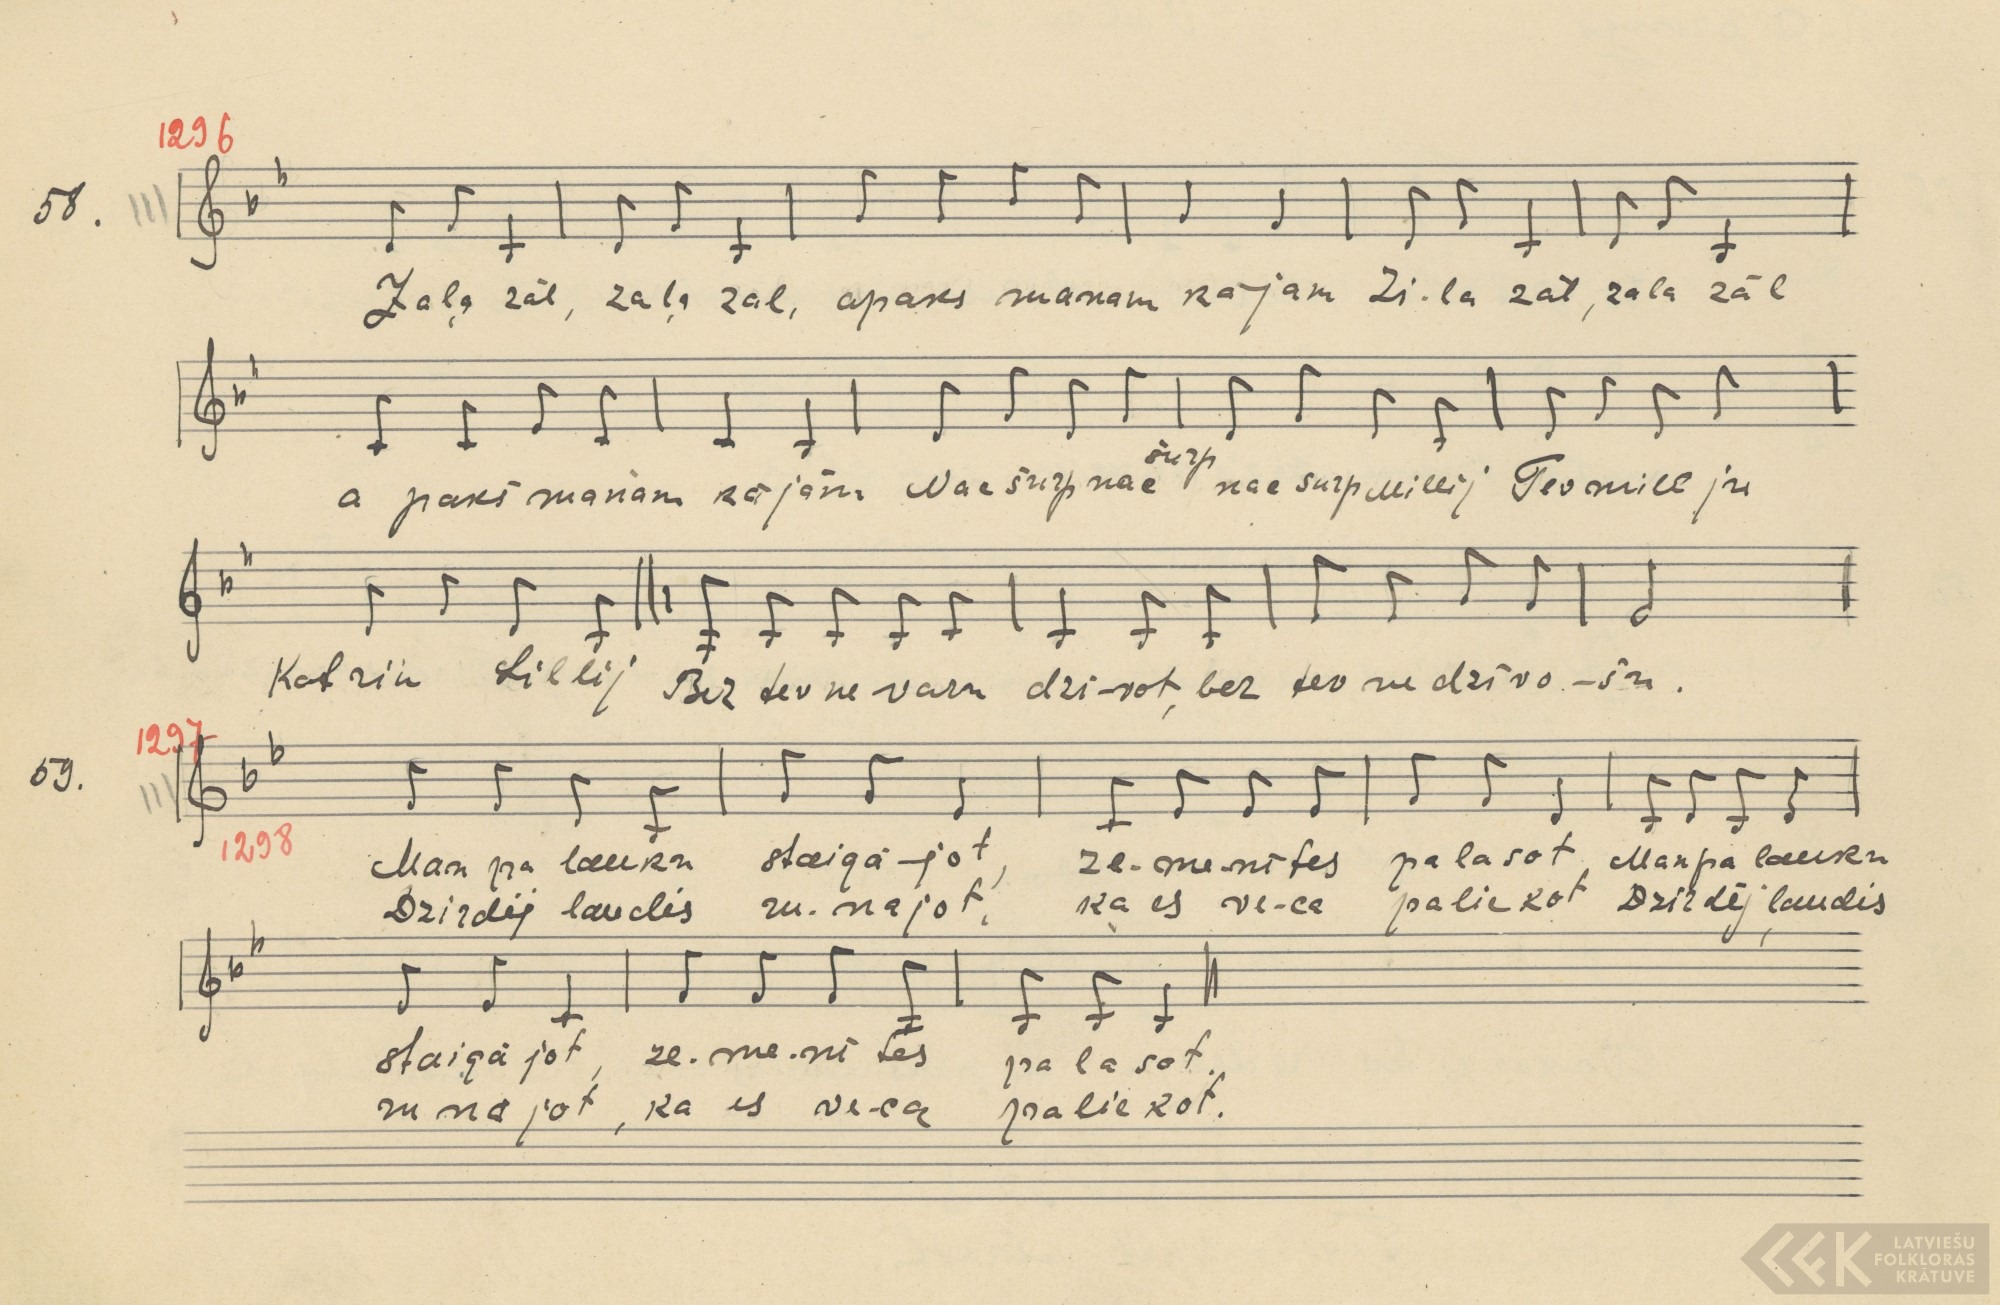 1296
58.
Zaļa zāl, zaļa zal, apaks manam kājam Zi-la zāl, zala zāl
šurp
a paks manam kājām Nāc šurp nāc nāc šurp Millij Tev mill ju
Katrin Lillij Bez tev ne varu dzi-vot, bez tev ne dzīvo-šu.
1297
59.
1298
Man pa lauku staigā-jot, ze-me-nītes palasot Man pa lauku
Dzirdēj laudis ru-najot, ka es ve-ca paliekot Dzirdēj ļaudis
staigājot, ze-me-nī tes palasot.
runājot, ka es ve-ca paliekot.
LATVIEŠU
FOLKLORAS
KRĀTUVE